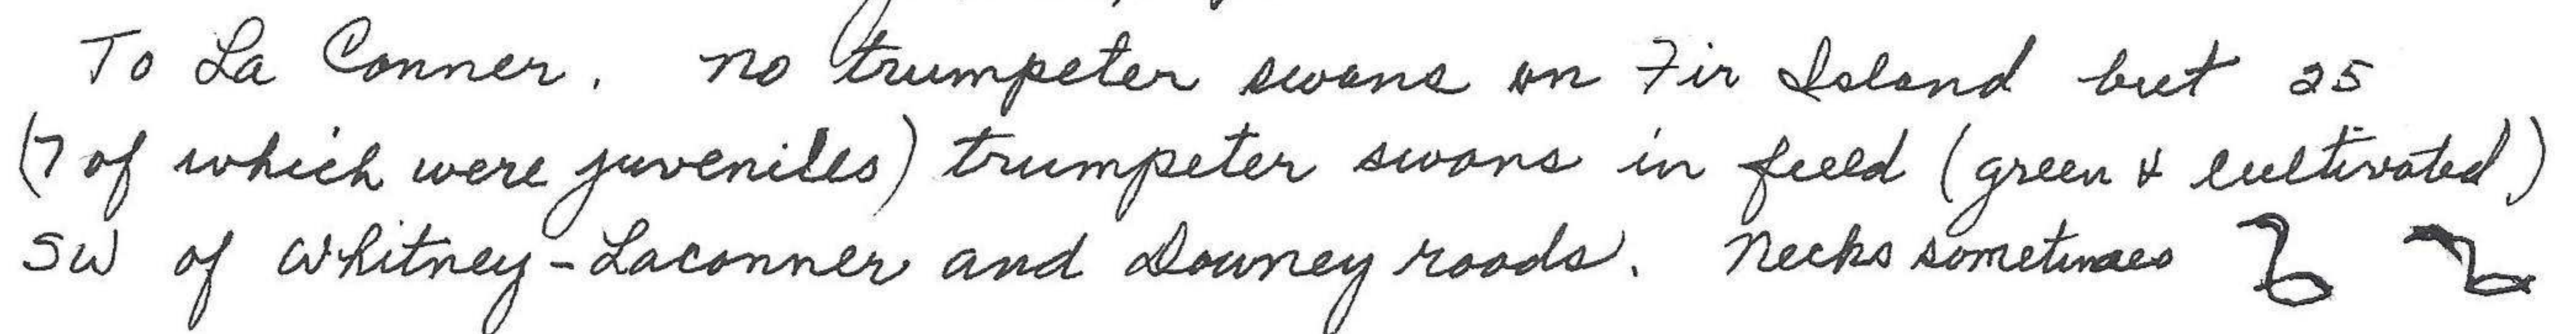 To La Conner. No trumpeter swans on Fir Island but 25
(7 of which were juveniles) trumpeter swans in field (green & cultivated)
SW of Whitney-Laconner and Downey roads. Necks sometimes